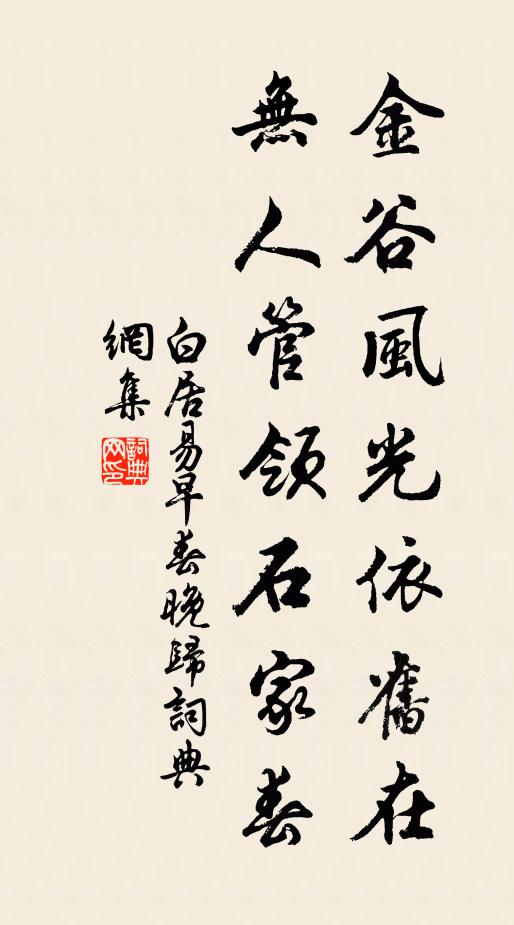 金谷風光依舊在
無人管領石家春
白居易早春晚歸詞典
網集
詞典網印